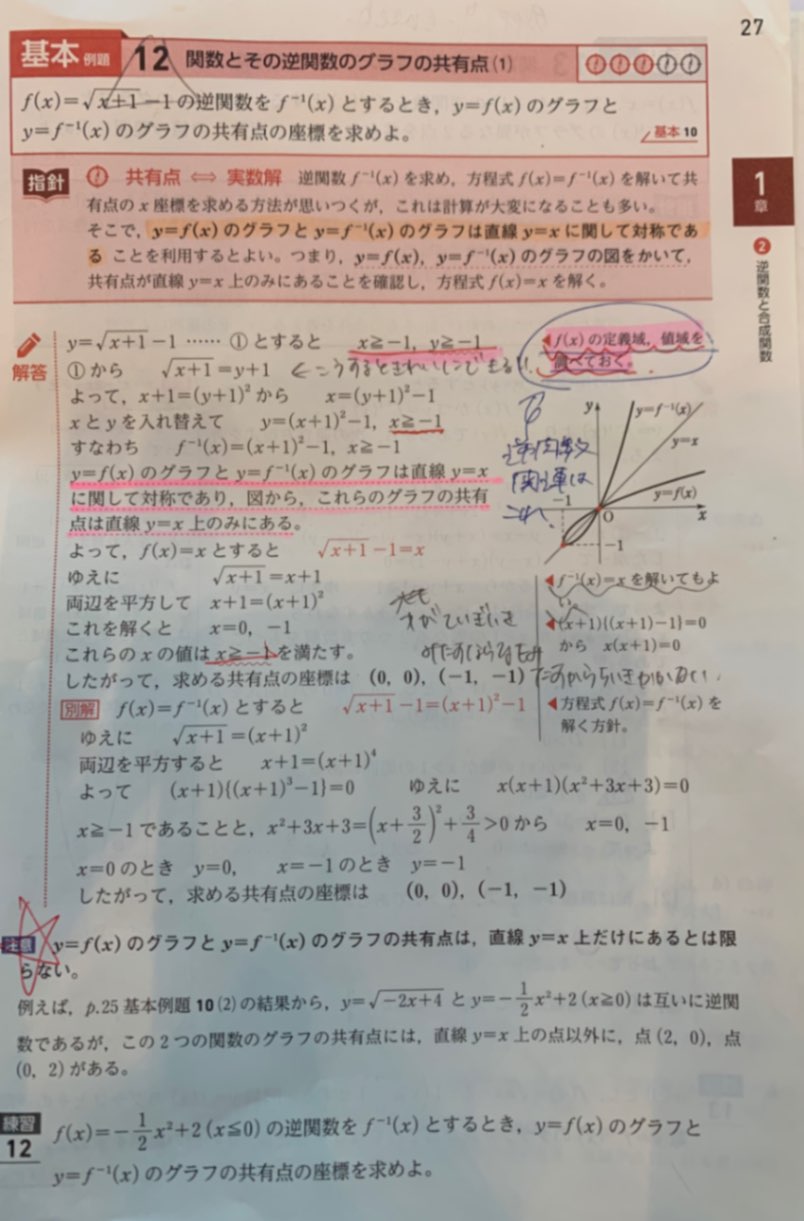 27
基本 例題 12 関数とその逆関数のグラフの共有点(1)
f(x)=√(x+1)−1の逆関数をf⁻¹(x)とするとき，y=f(x)のグラフと
y=f⁻¹(x)のグラフの共有点の座標を求めよ。
基本10
指針 共有点 ⇔ 実数解 逆関数f⁻¹(x)を求め，方程式f(x)=f⁻¹(x)を解いて共
有点のx座標を求める方法が思いつくが，これは計算が大変になることも多い。
そこで，y=f(x)のグラフとy=f⁻¹(x)のグラフは直線y=xに関して対称であ
ることを利用するとよい。つまり，y=f(x)，y=f⁻¹(x)のグラフの図をかいて，
共有点が直線y=x上のみにあることを確認し，方程式f(x)=xを解く。
1
章
2 逆関数と合成関数
解答
y=√(x+1)−1 …… ①とすると x≧−1，y≧−1
◀f(x)の定義域，値域を
調べておく。
①から √(x+1)=y+1 ←こうするときれいにできる!!
よって，x+1=(y+1)²から x=(y+1)²−1
xとyを入れ替えて y=(x+1)²−1，x≧−1
すなわち f⁻¹(x)=(x+1)²−1，x≧−1
y=f(x)のグラフとy=f⁻¹(x)のグラフは直線y=x
に関して対称であり，図から，これらのグラフの共有
点は直線y=x上のみにある。
逆関数
関連は
これ、
y
y=f⁻¹(x)
y=x
y=f(x)
−1
O
x
−1
よって，f(x)=xとすると √(x+1)−1=x
ゆえに √(x+1)=x+1
両辺を平方して x+1=(x+1)²
これを解くと x=0，−1
これらのxの値はx≧−1を満たす。
したがって，求める共有点の座標は (0, 0)，(−1, −1)
◀f⁻¹(x)=xを解いてもよ
い。
◀(x+1){(x+1)−1}=0
から x(x+1)=0
別解 f(x)=f⁻¹(x)とすると √(x+1)−1=(x+1)²−1
◀方程式f(x)=f⁻¹(x)を
解く方針。
ゆえに √(x+1)=(x+1)²
両辺を平方すると x+1=(x+1)⁴
よって (x+1){(x+1)³−1}=0 ゆえに x(x+1)(x²+3x+3)=0
x≧−1であることと，x²+3x+3=(x+3/2)²+3/4>0から x=0，−1
x=0のとき y=0， x=−1のとき y=−1
したがって，求める共有点の座標は (0, 0)，(−1, −1)
注意 y=f(x)のグラフとy=f⁻¹(x)のグラフの共有点は，直線y=x上だけにあるとは限
らない。
例えば，p.25基本例題10(2)の結果から，y=√(−2x+4)とy=−1/2x²+2(x≧0)は互いに逆関
数であるが，この2つの関数のグラフの共有点には，直線y=x上の点以外に，点(2, 0)，点
(0, 2)がある。
練習
12 f(x)=−1/2x²+2(x≦0)の逆関数をf⁻¹(x)とするとき，y=f(x)のグラフと
y=f⁻¹(x)のグラフの共有点の座標を求めよ。